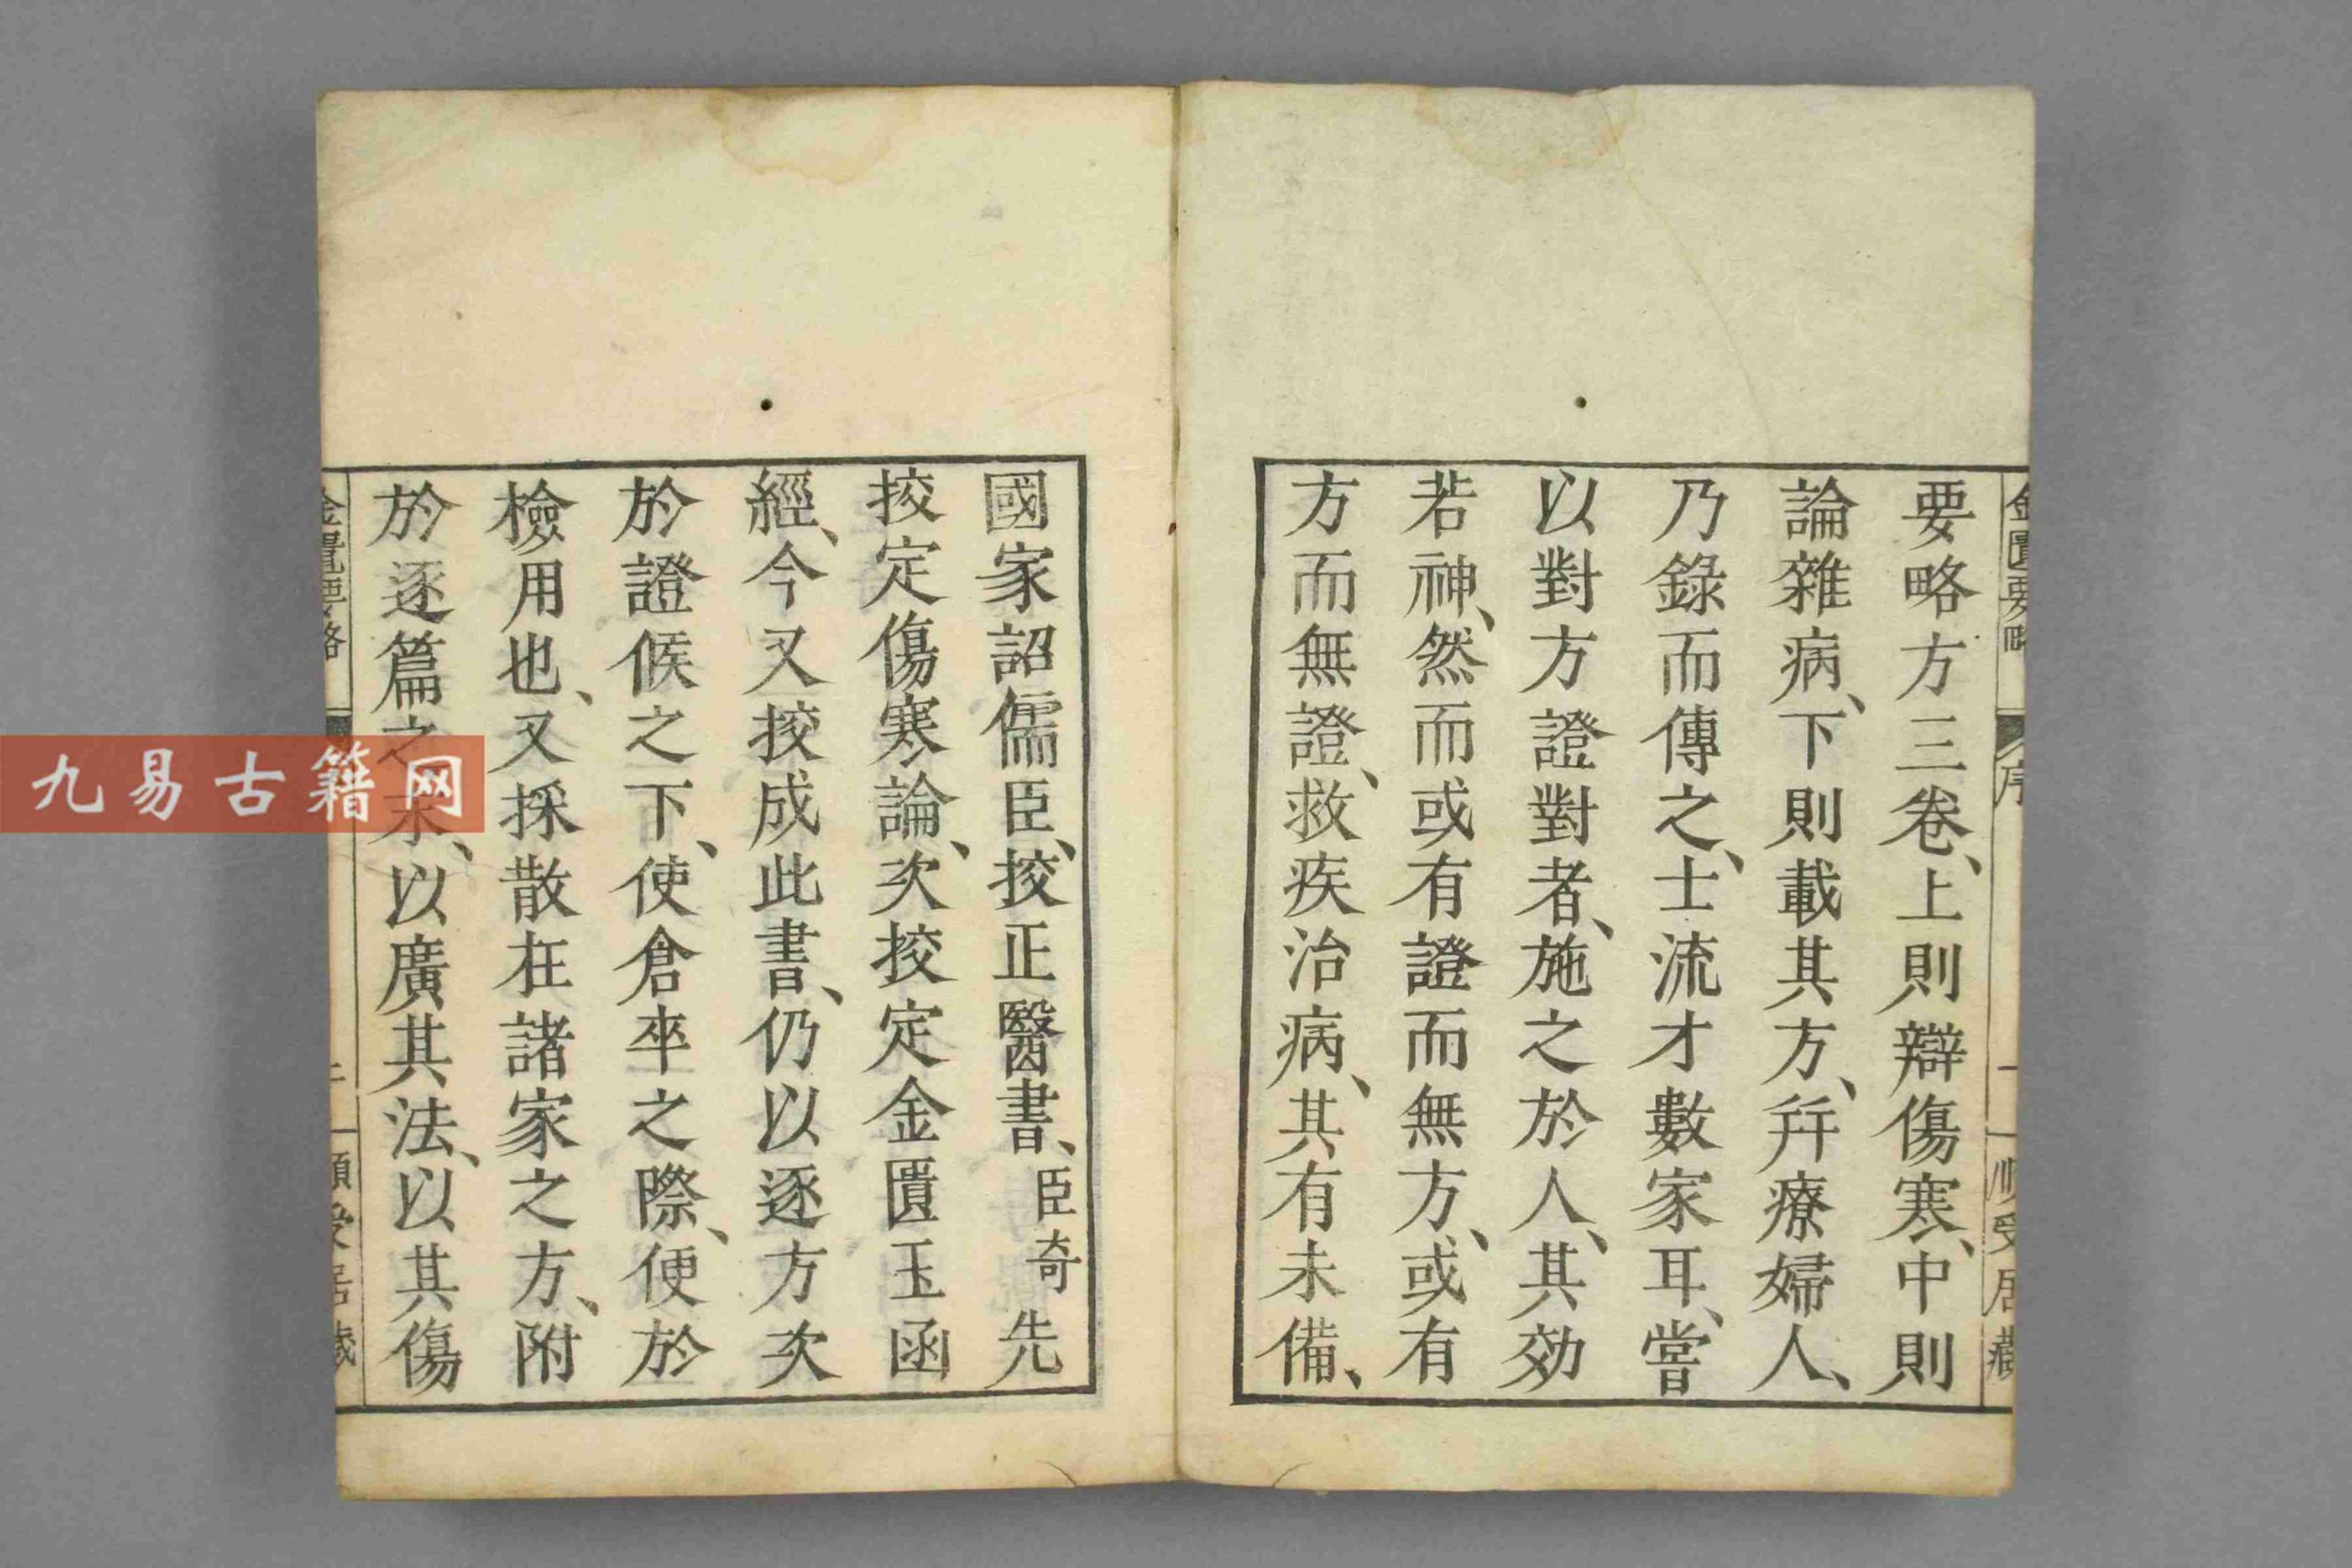 金匱要略 序 一 順受居藏
要略方三卷、上則辯傷寒、中則
論雜病、下則載其方、幷療婦人、
乃錄而傳之、士流才數家耳、嘗
以對方證對者、施之於人、其効
若神、然而或有證而無方、或有
方而無證、救疾治病、其有未備、
國家詔儒臣、挍正醫書、臣奇先
挍定傷寒論、次挍定金匱玉函
經、今又挍成此書、仍以逐方次
於證候之下、使倉卒之際、便於
檢用也、又採散在諸家之方、附
於逐篇之末、以廣其法、以其傷
金匱要略 順受居藏
九易古籍网